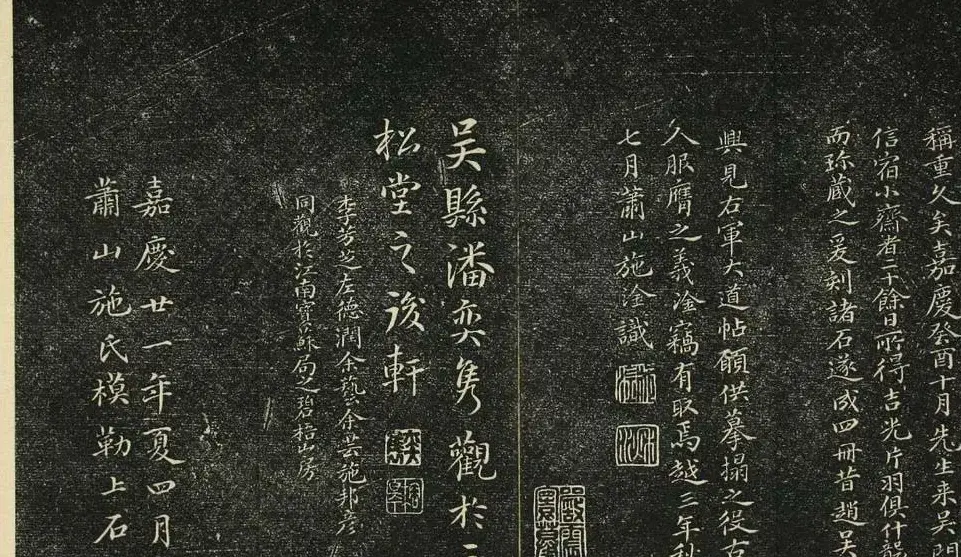 稱重久矣嘉慶癸酉十月先生来吳門
信宿小齋者二十餘日所得吉光片羽俱什襲
而珎蔵之爰刻諸石遂成四冊昔趙吳
興見右軍大道帖願供摹搨之役古
久服膺之義淦竊有取焉越三年秋
七月蕭山施淦識
吳縣潘奕雋觀於三
松堂之後軒
李芳芝左德潤余藝余芸施邦彦
同觀於江南寳蘇局之碧梧山房
嘉慶廿一年夏四月
蕭山施氏模勒上石